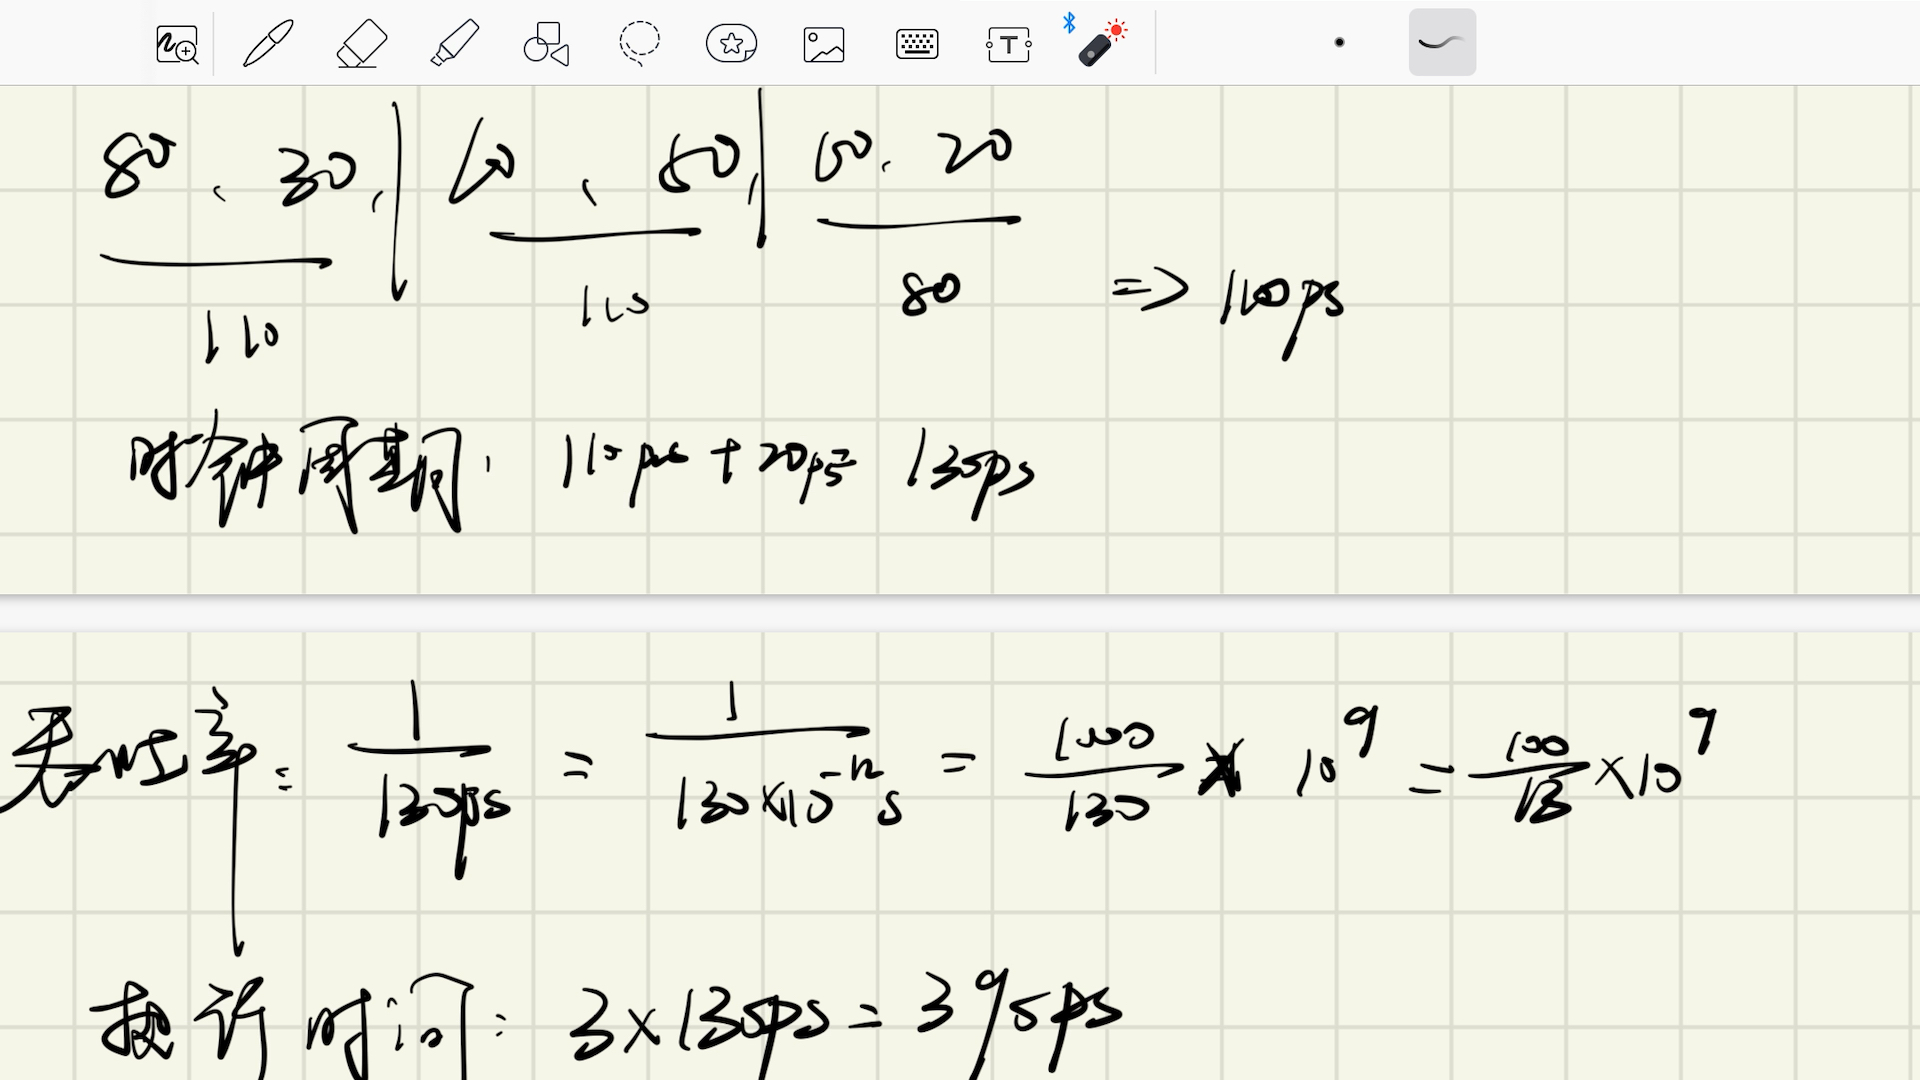 80、30, 60、50, 60、20
110 110 80 => 110ps
时钟周期: 110ps + 20ps = 130ps
吞吐率: 1/130ps = 1/130×10^-12 s = 1000/130 × 10^9 = 100/13 ×10^9
执行时间: 3×130ps = 390ps